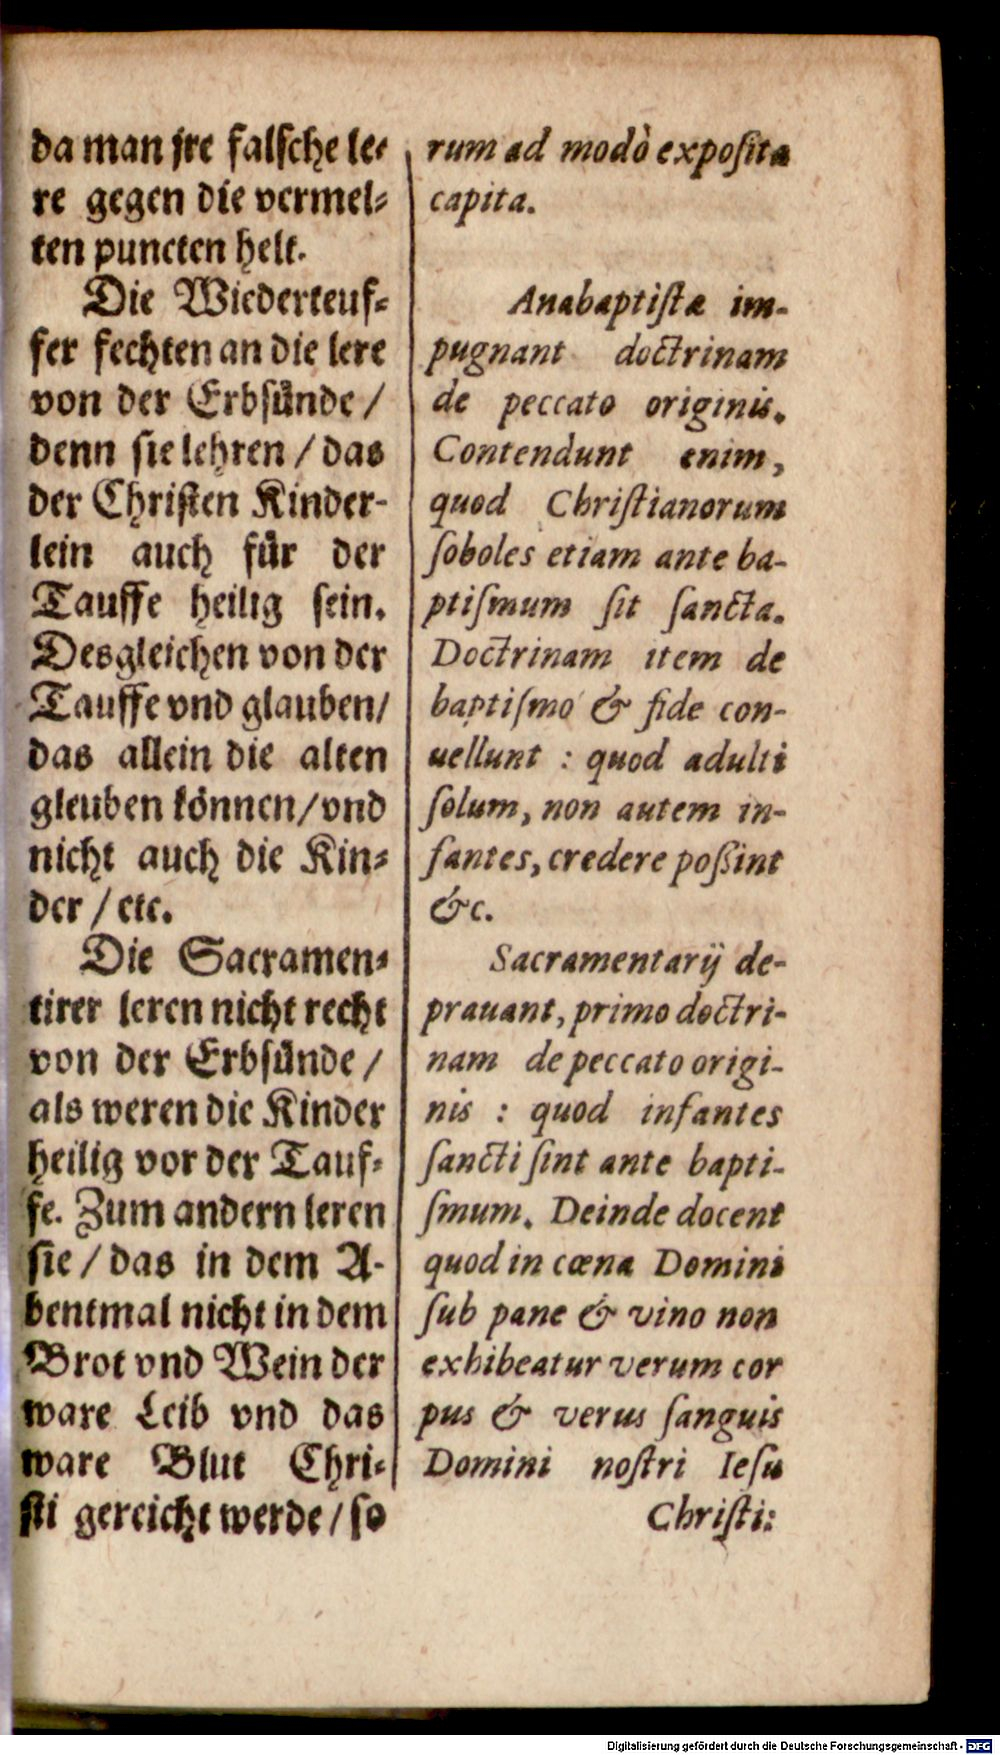 da man jre falsche le⸗
re gegen die vermel⸗
ten puncten helt.
Die Wiederteuf⸗
fer fechten an die lere
von der Erbsünde /
denn sie lehren / das
der Christen Kinder-
lein auch für der
Tauffe heilig sein.
Desgleichen von der
Tauffe vnd glauben/
das allein die alten
gleuben können/vnd
nicht auch die Kin⸗
der / etc.
Die Sacramen⸗
tirer leren nicht recht
von der Erbsünde /
als weren die Kinder
heilig vor der Tauf⸗
fe. Zum andern leren
sie / das in dem A-
bentmal nicht in dem
Brot vnd Wein der
ware Leib vnd das
ware Blut Chri⸗
sti gereicht werde / so
rum ad modò exposita
capita.
Anabaptistæ im-
pugnant doctrinam
de peccato originis.
Contendunt enim,
quod Christianorum
soboles etiam ante ba-
ptismum sit sancta.
Doctrinam item de
baptismo & fide con-
uellunt : quod adulti
solum, non autem in-
fantes, credere poßint
&c.
Sacramentarij de-
prauant, primo doctri-
nam de peccato origi-
nis : quod infantes
sancti sint ante bapti-
smum. Deinde docent
quod in cœna Domini
sub pane & vino non
exhibeatur verum cor
pus & verus sanguis
Domini nostri Iesu
Christi:
Digitalisierung gefördert durch die Deutsche Forschungsgemeinschaft - DFG